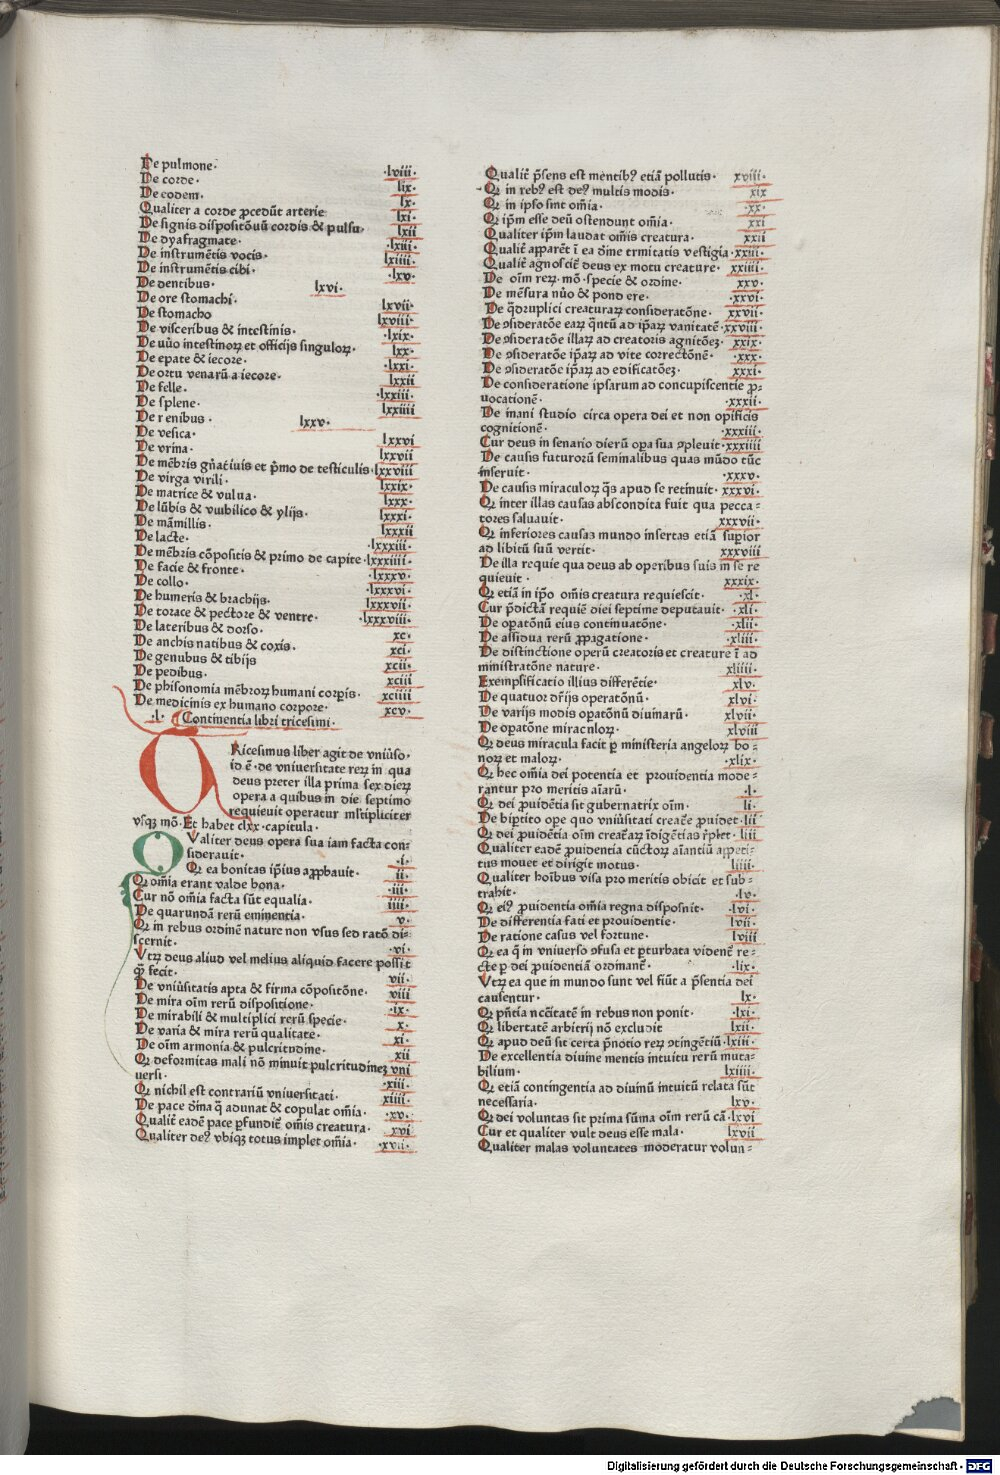 De pulmone· ·lviii·
De corde· lix·
De eodem· lx·
Qualiter a corde ꝓcedūt arterie lxi·
De signis dispositōnū cordis & pulsu· lxii
De dyafragmate· ·lxiii·
De instrumētis vocis· lxiiii·
De instrumētis cibi· ·lxv·
De dentibus· lxvi·
De ore stomachi·
De stomacho lxvii·
De visceribus & intestinis· lxviii·
De vsu intestinoꝝ et officijs singuloꝝ· ·lxix·
De epate & iecore· lxx·
De ortu venarū a iecore· ·lxxi·
De felle· lxxii
De splene· ·lxxiii·
De renibus· lxxv· lxxiiii
De vesica·
De vrina· lxxvi
De mēbris gn̄atiuis et p̄mo de testiculis· lxxvii ·lxxviii
De virga virili· lxxix·
De matrice & vulua· lxxx·
De lūbis & vmbilico & ylijs· lxxxi·
De māmillis· lxxxii
De lacte· ·lxxxiii·
De mēbris cōpositis & primo de capite ·lxxxiiii·
De facie & fronte· ·lxxxv·
De collo· ·lxxxvi·
De humeris & brachijs· lxxxvii·
De torace & pectore & ventre· ·lxxxviii·
De lateribus & dorso· xc·
De anchis natibus & coxis· xci·
De genubus & tibijs xcii·
De pedibus· xciii
De phisonomia mēbroꝝ humani corꝑis· xciiii
De medicinis ex humano corpore· xcv·
·l· Continentia libri tricesimi·
Ricesimus liber agit de vniūso·
id ē· de vniuersitate reꝝ in qua
deus preter illa prima sex dieꝝ
opera a quibus in die septimo
requieuit operatur mltipliciter
vsqꝫ mō· Et habet clxx capitula·
Valiter deus opera sua iam facta con⸗
siderauit· ·i·
Qꝛ ea bonitas ip̄ius aꝓbauit· ii·
Qꝛ om̄ia erant valde bona· ·iii·
Cur nō omia facta sūt equalia· iiii·
De quarundā rerū eminentia· v·
Qꝛ in rebus ordinē nature non vsus sed ratō di⸗
scernit· ·vi·
Vtꝝ deus aliud vel melius aliquid facere possit
q̄ fecit· vii·
De vniūsitatis apta & firma cōpositōne· viii
De mira oīm rerū dispositione· ·ix·
De mirabili & multiplici rerū specie· x·
De varia & mira rerū qualitate· xi·
De oīm armonia & pulcritudine· xii
Qꝛ deformitas mali nō minuit pulcritudineꝫ vni
uersi· ·xiii·
Qꝛ nichil est contrariū vniuersitati· xiiii·
De pace d̄ina q̄ adunat & copulat om̄ia· ·xv·
Qualit̄ eadē pace ꝑfundit̄ om̄is creatura· xvi
Qualiter deꝰ vbiqꝫ totus implet om̄ia· ·xvii·
Qualit̄ p̄sens est mentibꝰ etiā pollutis· xviii·
Qꝛ in rebꝰ est deꝰ multis modis· xix
Qꝛ in ipso sint om̄ia· ·xx·
Qꝛ ip̄m esse deū ostendunt om̄ia· xxi
Qualiter ip̄m laudat om̄is creatura· xxii
Qualit̄ apparēt ī ea d̄ine trinitatis vestigia ·xxiii·
Qualit̄ agnoscit̄ deus ex motu creature· xxiiii·
De oīm reꝝ· mō· specie & ordine· xxv·
De mēsura nūo & pondere· ·xxvi·
De q̄druplici creaturaꝝ consideratōne· xxvii·
De ꝯsideratōe eaꝝ q̄ntū ad ip̄aꝝ vanitatē ·xxviii·
De ꝯsideratōe illaꝝ ad creatoris agnitōeꝫ· xxix·
De ꝯsideratōe ip̄aꝝ ad vite correctōnē· ·xxx·
De ꝯsideratōe ip̄aꝝ ad edificatōeꝫ· xxxi·
De consideratione ipsarum ad concupiscentie ꝓ⸗
uocationē· ·xxxii·
De inani studio circa opera dei et non opificis
cognitionē· ·xxxiii·
Cur deus in senario dierū oꝑa sua ꝯpleuit ·xxxiiii
De causis futurorū seminalibus quas mūdo tūc
inseruit· ·xxxv·
De causis miraculoꝝ q̄s apud se retinuit· xxxvi·
Qꝛ inter illas causas abscondita fuit qua pecca⸗
tores saluauit· xxxvii·
Qꝛ inferiores causas mundo insertas etiā suꝑior
ad libitū suū vertit· xxxviii
De illa requie qua deus ab operibus suis in se re
quieuit· xxxix·
Qꝛ etiā in ip̄o om̄is creatura requiescit· ·xl·
Cur p̄dictā requiē diei septime deputauit· ·xli·
De oꝑatōnū eius continuatōne· ·xlii·
De assidua rerū ꝓpagatione· ·xliii·
De distinctione operū creatoris et creature ī ad
ministratōne nature· xliiii·
Exemplificatio illius differētie· xlv·
De quatuor dr̄ijs operatōnū· xlvi·
De varijs modis oꝑatōnū diuinarū· xlvii·
De oꝑatōne miracl̄oꝝ· xlviii
Qꝛ deus miracula facit ꝑ ministeria angeloꝝ bo⸗
noꝝ et maloꝝ· ·xlix·
Qꝛ hec om̄ia dei potentia et prouidentia mode⸗
rantur pro meritis aīarū· ·l·
Qꝛ dei ꝓuidētia sit gubernatrix oīm· li·
De biptito ope quo vniūsitati creatē ꝓuidet ·lii
Qꝛ dei ꝓuidētia oīm creat̄aꝝ īdigētias r̄plet· liii
Qualiter eadē ꝓuidentia cūctoꝝ aīantiū appeti⸗
tus mouet et dirigit motus· liiii·
Qualiter hoībus visa pro meritis obicit et sub⸗
trahit· ·lv·
Qꝛ eiꝰ ꝓuidentia om̄ia regna disponit· ·lvi·
De differentia fati et prouidentie· lvii·
De ratione casus vel fortune· lviii
Qꝛ ea q̄ in vniuerso ꝯfusa et ꝑturbata videnī re⸗
cte ꝑ dei ꝓuidentiā ordinanī· ·lix·
Vtꝝ ea que in mundo sunt vel fiūt a p̄sentia dei
causentur· lx·
Qꝛ p̄n̄tia nc̄citatē in rebus non ponit· ·lxi·
Qꝛ libertatē arbitrij nō excludit lxii·
Qꝛ apud deū sit certa p̄notio reꝝ ꝯtingētiū ·lxiii·
De excellentia diuine mentis intuitu rerū muta⸗
bilium· lxiiii·
Qꝛ etiā contingentia ad diuinū intuitū relata sūt
necessaria· lxv·
Qꝛ dei voluntas sit prima sūma oīm rerū cā ·lxvi
Cur et qualiter vult deus esse mala· lxvii
Qualiter malas voluntates moderatur volun⸗
Digitalisierung gefördert durch die Deutsche Forschungsgemeinschaft · DFG